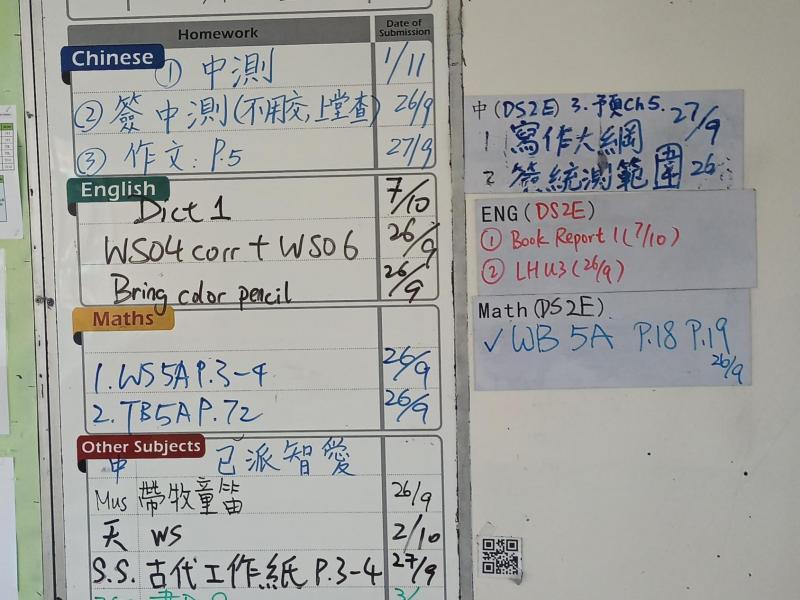 Homework Date of Submission
Chinese
① 中測 1/11
② 簽中測(不用交,上堂查) 26/9
③ 作文: P.5 27/9
English
Dict 1 7/10
WS04 corr + WS06 26/9
Bring color pencil 26/9
Maths
1. WS5A P.3-4 26/9
2. TB5A P.72 26/9
Other Subjects
中 已派智愛
Mus 帶牧童笛 26/9
天 WS 2/10
S.S. 古代工作紙 P.3-4 27/9
中(DS2E) 3.預Ch5.
1 寫作大綱 27/9
2 簽統測範圍 26
ENG(DS2E)
① Book Report 1(7/10)
② LHU3(26/9)
Math(DS2E)
✓ WB 5A P.18 P.19
26/9